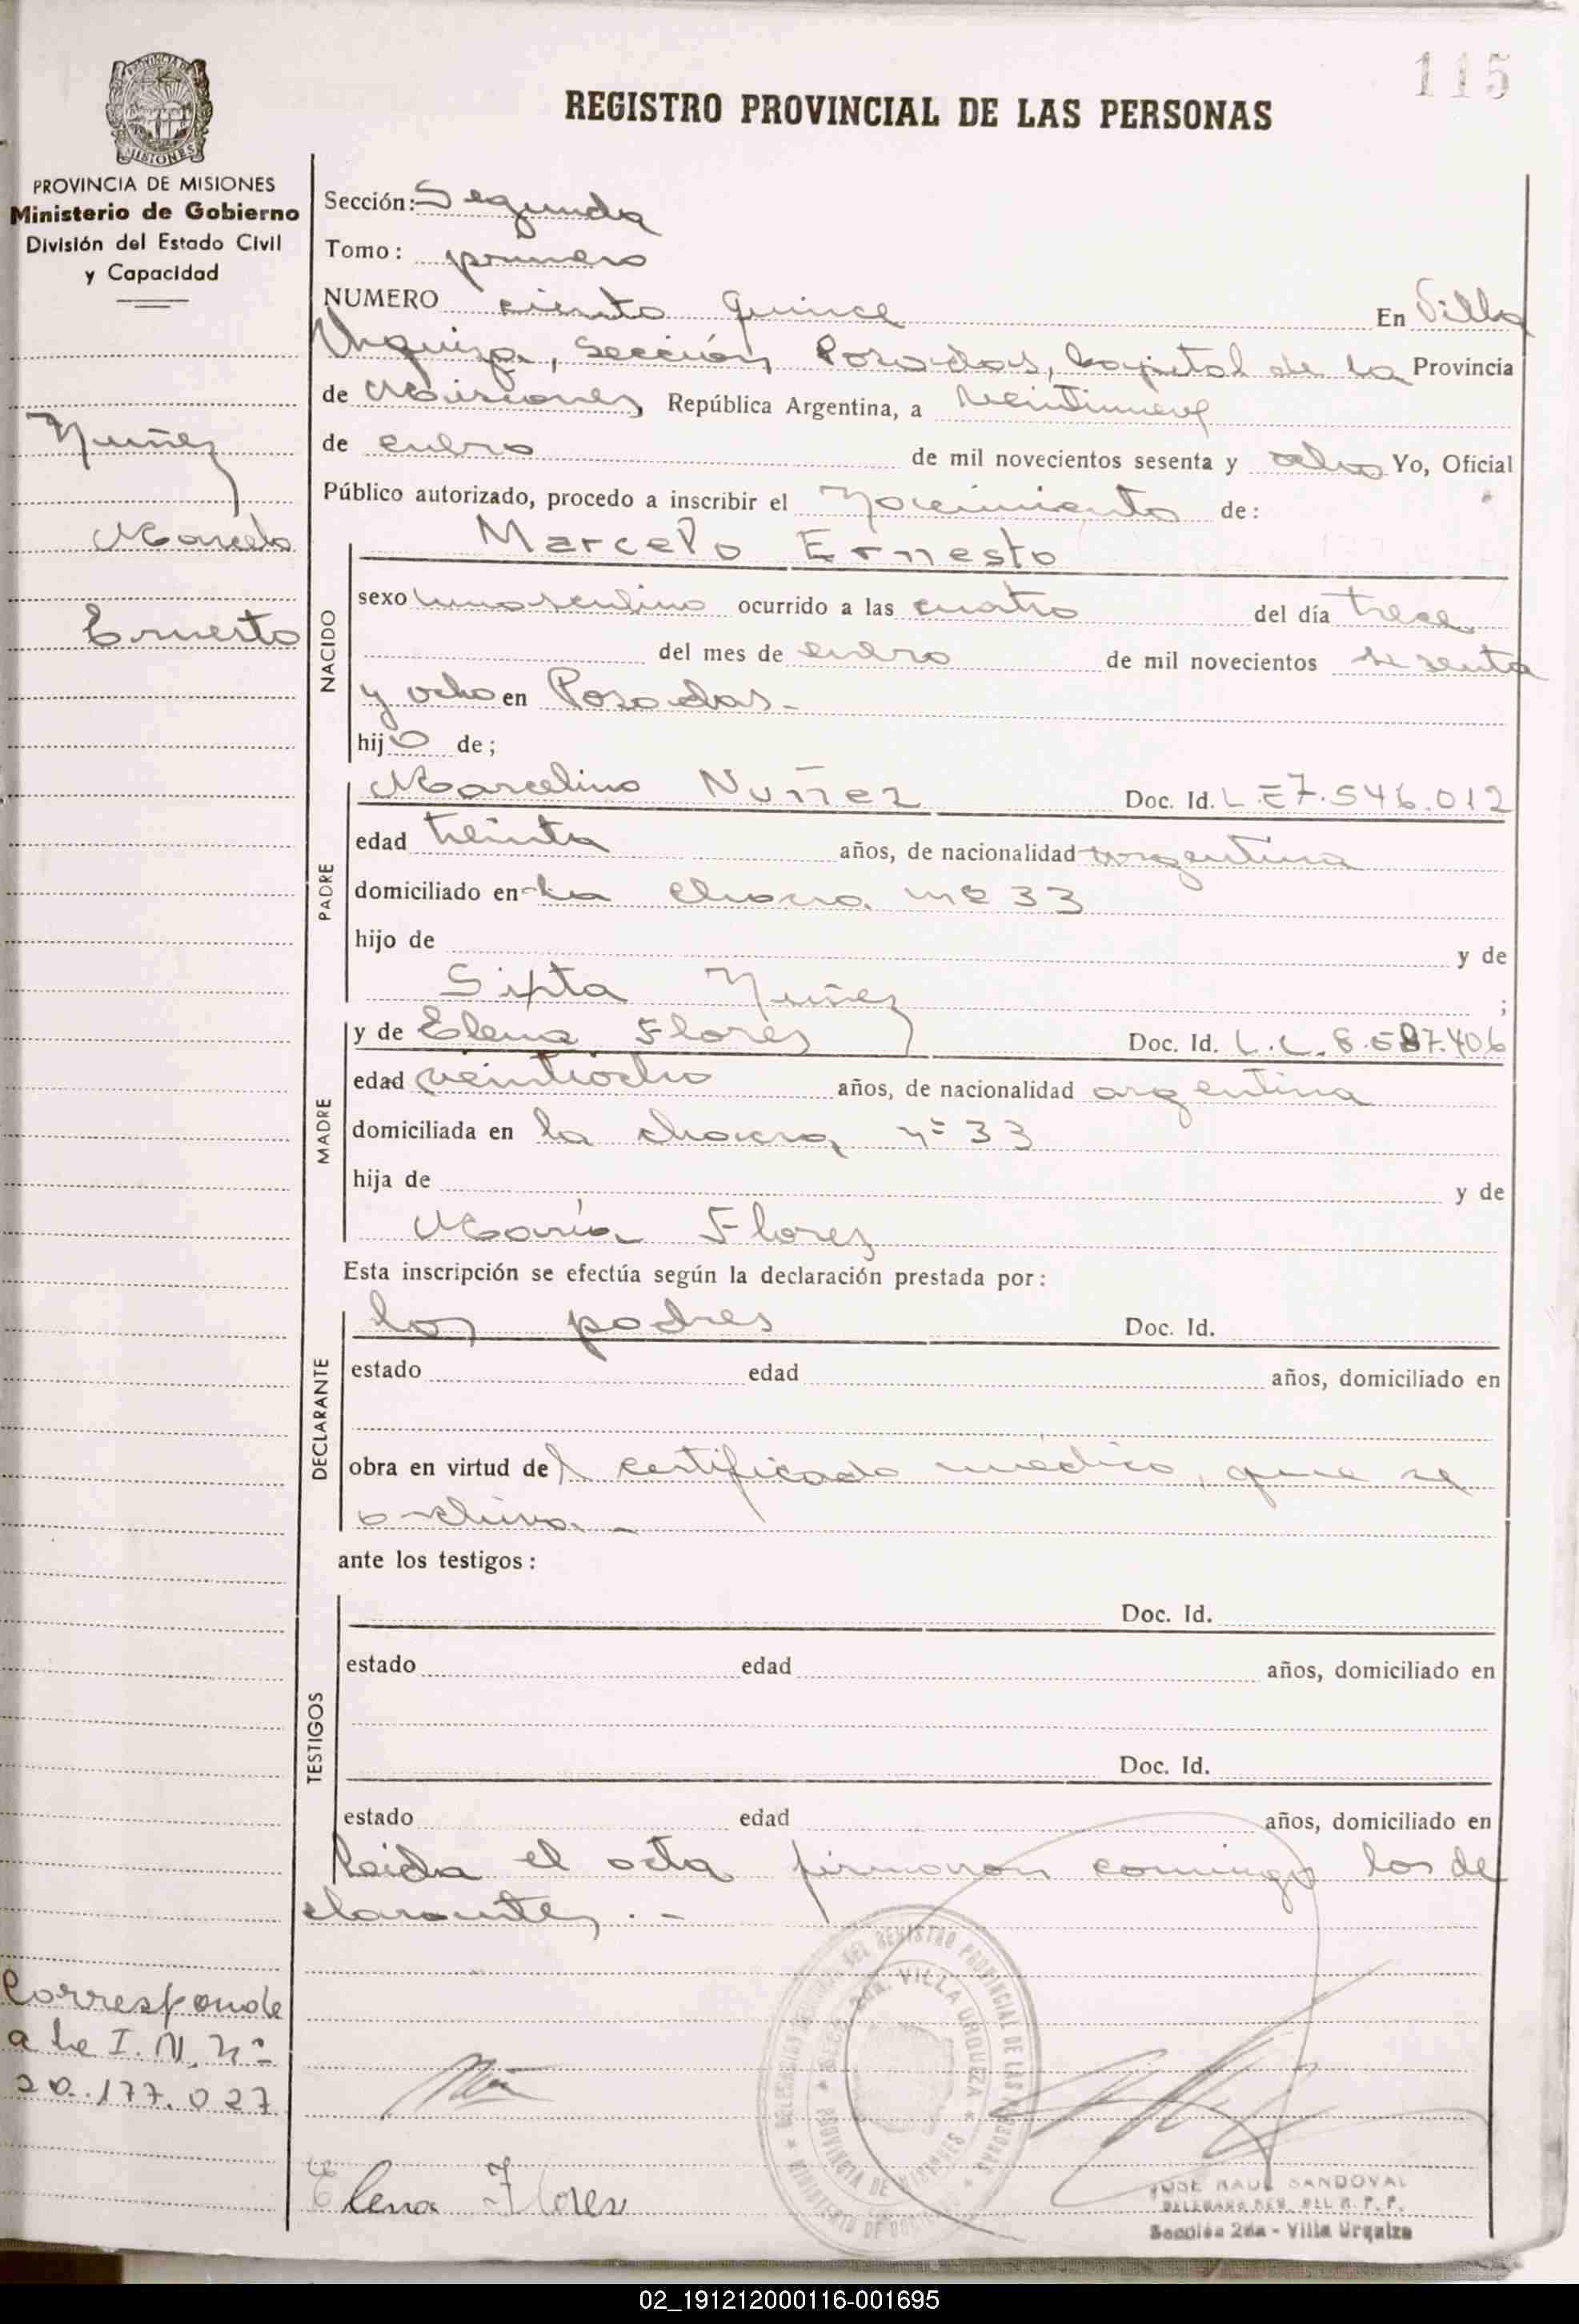 115
REGISTRO PROVINCIAL DE LAS PERSONAS
MISIONES
PROVINCIA DE MISIONES
Ministerio de Gobierno
División del Estado Civil
y Capacidad
Nuñez
Marcelo
Ernesto
Sección: Segunda
Tomo: primero
NUMERO ciento quince En Villa
Urquiza, Sección Posadas, Capital de la Provincia
de Misiones, República Argentina, a veintinueve
de enero de mil novecientos sesenta y ocho Yo, Oficial
Público autorizado, procedo a inscribir el Nacimiento de:
NACIDO
Marcelo Ernesto
sexo masculino ocurrido a las cuatro del día trece
del mes de enero de mil novecientos sesenta
y ocho en Posadas.-
hijo de;
PADRE
Marcelino Nuñez Doc. Id. L.E 7.546.012
edad treinta años, de nacionalidad argentina
domiciliado en la chacra nº 33
hijo de y de
Sixta Nuñez ;
MADRE
y de Elena Flores Doc. Id. L.C. 6.587.406
edad veintiocho años, de nacionalidad argentina
domiciliada en la chacra nº 33
hija de y de
María Flores
Esta inscripción se efectúa según la declaración prestada por:
DECLARANTE
los padres Doc. Id.
estado edad años, domiciliado en
obra en virtud del certificado médico, que se
archiva.-
ante los testigos:
TESTIGOS
Doc. Id.
estado edad años, domiciliado en
Doc. Id.
estado edad años, domiciliado en
leida el acta firmaron conmigo los de
clarantes.-
Corresponde
a la I. N. nº
20.177.027
DEL REGISTRO PROVINCIAL DE LAS PERSONAS
VILLA URQUIZA
PROVINCIA DE MISIONES
MINISTERIO DE GOBIERNO
Elena Flores
JOSE RAUL SANDOVAL
DEL R. P. P.
Sección 2da - Villa Urquiza
02_191212000116-001695